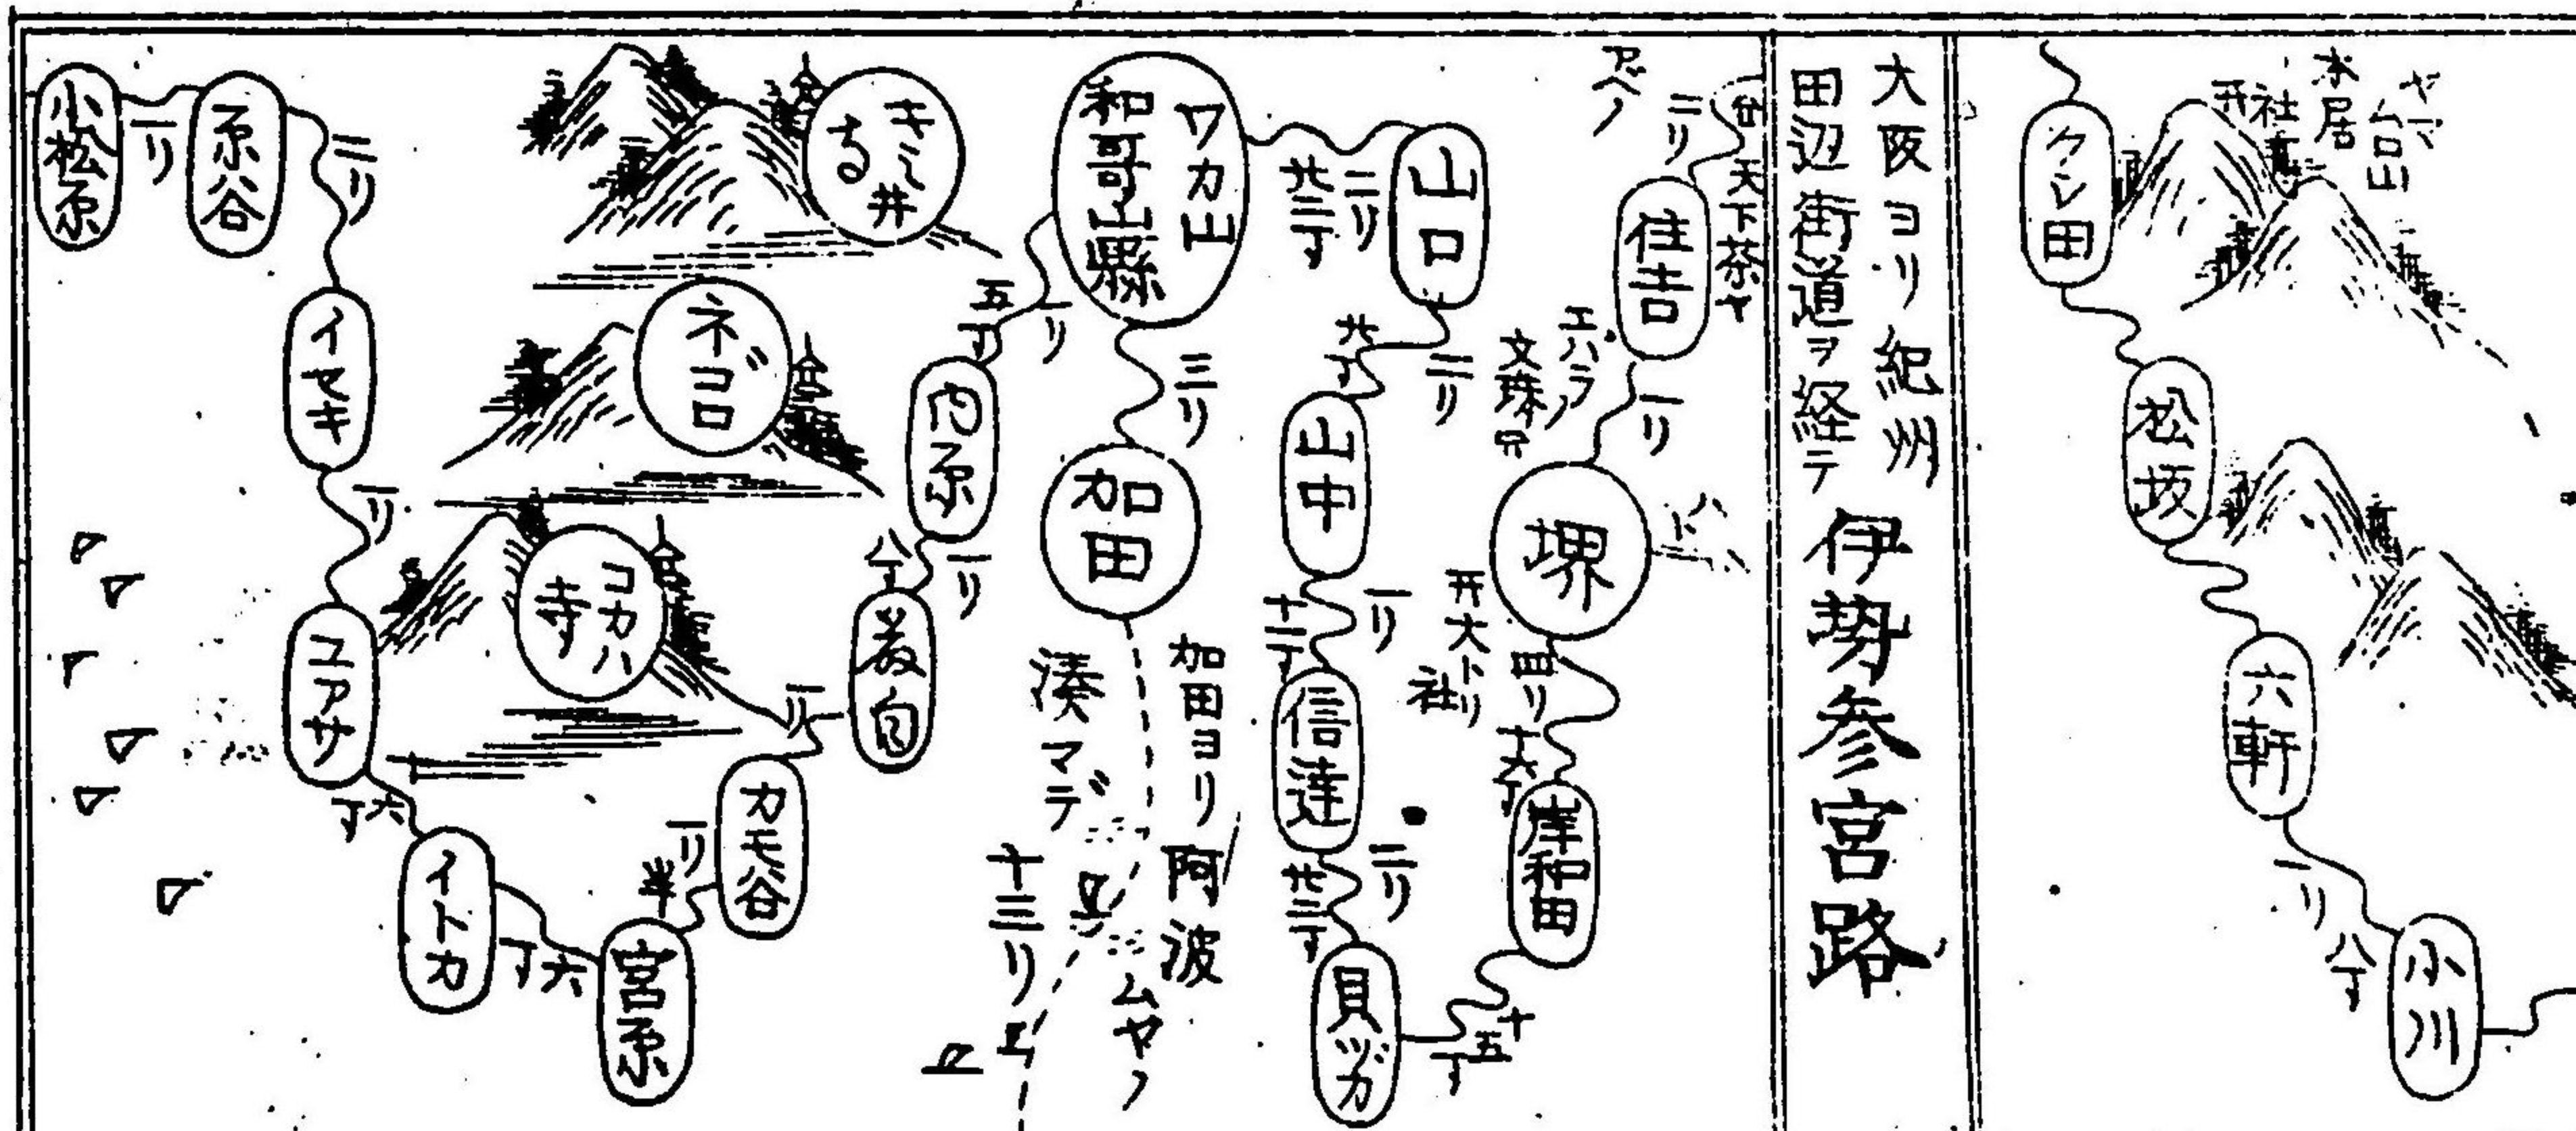 ヤマ
本居
社
クシ田
松坂
六軒
一リ
八丁
小川
大阪ヨリ紀州
田辺街道ヲ経テ
伊勢参宮路
アベノ
二リ
天下茶ヤ
住吉
一リ
エハラノ
文珠
堺
大トリ
社
四リ
十六丁
岸和田
十五丁
貝ヅカ
二リ
廿三丁
信達
一リ
十二丁
山中
二リ
廿丁
山口
二リ
廿三丁
ワカ山
和哥山縣
三リ
加田
加田ヨリ阿波
ムヤノ
湊マデ
十三リ
一リ
五丁
内原
一リ
八丁
一リ
カモ谷
一リ
半
宮原
六丁
イトカ
六丁
ユアサ
一リ
イセキ
二リ
原谷
一リ
小松原
キミ井
寺
ネゴロ
コカハ
寺